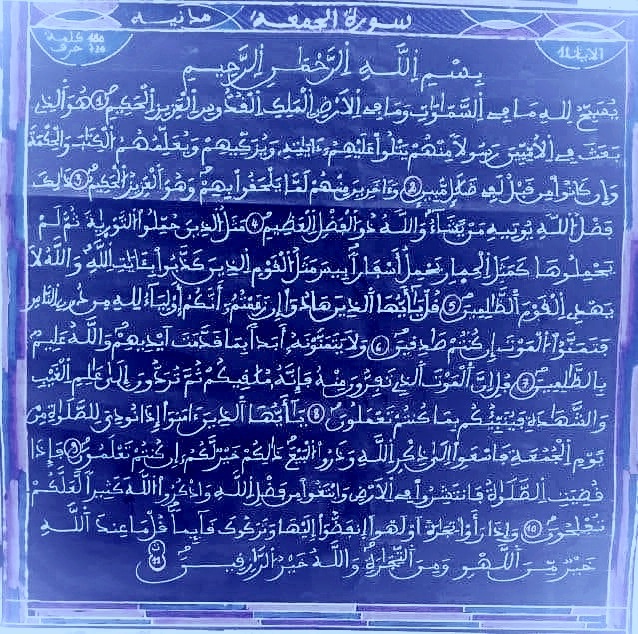 سورة الجمعة مدنية
180 كلمة
720 حرف
بِسْمِ اِللَّهِ اِلرَّحْمَٰنِ اِلرَّحِيمِ
يُسَبِّحُ لِلهِ مَا فِي اِلسَّمَٰوَٰتِ وَمَا فِي اِلَارْضِ اِلْمَلِكِ اِلْقُدُّوسِ اِلْعَزِيزِ اِلْحَكِيمِ 1 هُوَ اَلذِي
بَعَثَ فِي اِلُامِّيِّينَ رَسُولًا مِّنْهُمْ يَتْلُوا عَلَيْهِمُ ءَايَٰتِهِ وَيُزَكِّيهِمْ وَيُعَلِّمُهُمُ اُلْكِتَٰبَ وَالْحِكْمَةَ
وَإِن كَانُوا مِن قَبْلُ لَفِي ضَلَٰلٍ مُّبِينٍ 2 وَءَاخَرِينَ مِنْهُمْ لَمَّا يَلْحَقُوا بِهِمْ وَهُوَ اَلْعَزِيزُ اُلْحَكِيمُ 3 ذَٰلِكَ
فَضْلُ اُللَّهِ يُوتِيهِ مَنْ يَّشَآءُ وَاللَّهُ ذُو اُلْفَضْلِ اِلْعَظِيمِ 4 مَثَلُ اُلذِينَ حُمِّلُوا اُلتَّوْرَيٰةَ ثُمَّ لَمْ
يَحْمِلُوهَا كَمَثَلِ اِلْحِمَارِ يَحْمِلُ أَسْفَارًا بِيسَ مَثَلُ اُلْقَوْمِ اِلذِينَ كَذَّبُوا بِـَٔايَٰتِ اِللَّهِ وَاللَّهُ لَا
يَهْدِي اِلْقَوْمَ اَلظَّٰلِمِينَ 5 قُلْ يَٰٓأَيُّهَا اَلذِينَ هَادُوا إِن زَعَمْتُمُ أَنَّكُمُ أَوْلِيَآءُ لِلهِ مِن دُونِ اِلنَّاسِ
فَتَمَنَّوُا اُلْمَوْتَ إِن كُنتُمْ صَٰدِقِينَ 6 وَلَا يَتَمَنَّوْنَهُ أَبَدًا بِمَا قَدَّمَتَ اَيْدِيهِمْ وَاللَّهُ عَلِيمٌ
بِالظَّٰلِمِينَ 7 قُلِ اِنَّ اَلْمَوْتَ اَلذِي تَفِرُّونَ مِنْهُ فَإِنَّهُ مُلَٰقِيكُمْ ثُمَّ تُرَدُّونَ إِلَىٰ عَٰلِمِ اِلْغَيْبِ
وَالشَّهَٰدَةِ فَيُنَبِّئُكُم بِمَا كُنتُمْ تَعْمَلُونَ 8 يَٰٓأَيُّهَا اَلذِينَ ءَامَنُوا إِذَا نُودِيَ لِلصَّلَوٰةِ مِنْ
يَّوْمِ اِلْجُمُعَةِ فَاسْعَوِا اِلَىٰ ذِكْرِ اِللَّهِ وَذَرُوا اُلْبَيْعَ ذَٰلِكُمْ خَيْرٌ لَّكُمُ إِن كُنتُمْ تَعْلَمُونَ 9 فَإِذَا
قُضِيَتِ اِلصَّلَوٰةُ فَانتَشِرُوا فِي اِلَارْضِ وَابْتَغُوا مِن فَضْلِ اِللَّهِ وَاذْكُرُوا اُللَّهَ كَثِيرًا لَّعَلَّكُمْ
تُفْلِحُونَ 10 وَإِذَا رَأَوْا تِجَٰرَةً اَوْ لَهْوًا اِنفَضُّوا إِلَيْهَا وَتَرَكُوكَ قَآئِمًا قُلْ مَا عِندَ اَللَّهِ
خَيْرٌ مِّنَ اَللَّهْوِ وَمِنَ اَلتِّجَٰرَةِ وَاللَّهُ خَيْرُ اُلرَّٰزِقِينَ 11